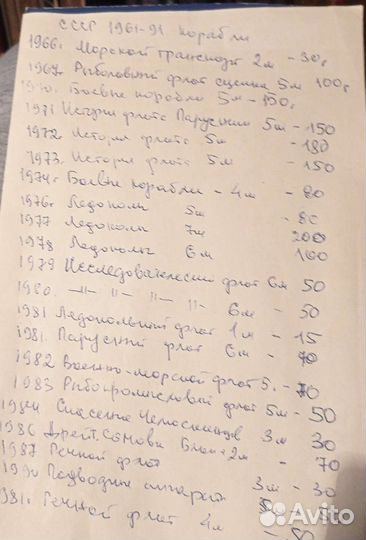 СССР 1961-91 Корабли
1966г Морской транспорт 2м - 30р
1967г Рыболовный флот сценка 5м 100р
Боевые корабли 5м - 150р
1971 История флота Парусники 5м - 150
1972 История флота 5м - 180
1973. История флота 5м - 150
1974г Боевые корабли - 4м - 80
1976г Ледоколы 5м - 80
1977 Ледоколы 7м 200
1978 Ледоколы 6м 100
1979 Исследовательский флот 6м 50
1980. -"- "- "- "- 6м - 50
1981 Ледокольный флот 1м - 15
1981. Парусный флот 6м - 70
1982 Военно-морской флот 5. - 70
1983 Рыбопромысловый флот 5м - 50
1984 Спасение Челюскинцев 3м 30
1986 Дрейф. Сомова Блок+2м - 70
1987 Речной флот
1990 Подводные аппараты 3м - 30
1981. Речной флот 4м
Avito